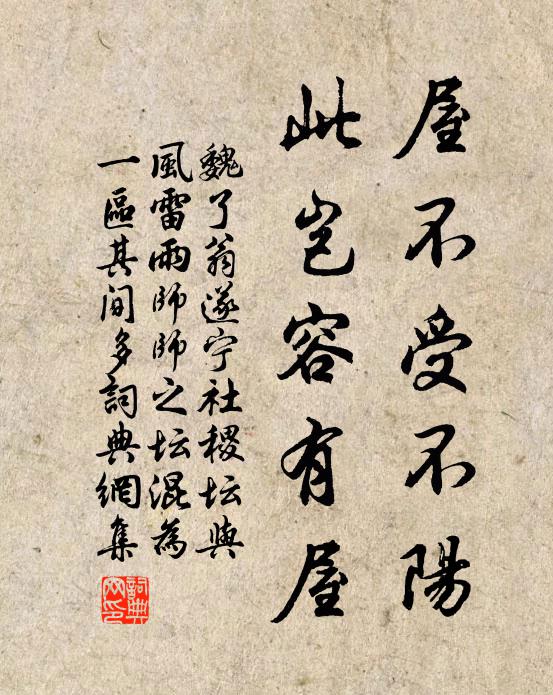 屋不受不陽
此岂容有屋
魏了翁遂宁社稷坛與
風雷雨師師之坛混為
一區其间多詞典網集
詞典网印